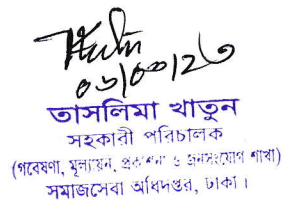 ০৬/০০/২৩
তাসলিমা খাতুন
সহকারী পরিচালক
(গবেষণা, মূল্যায়ন, প্রকাশনা ও জনসংযোগ শাখা)
সমাজসেবা অধিদপ্তর, ঢাকা।